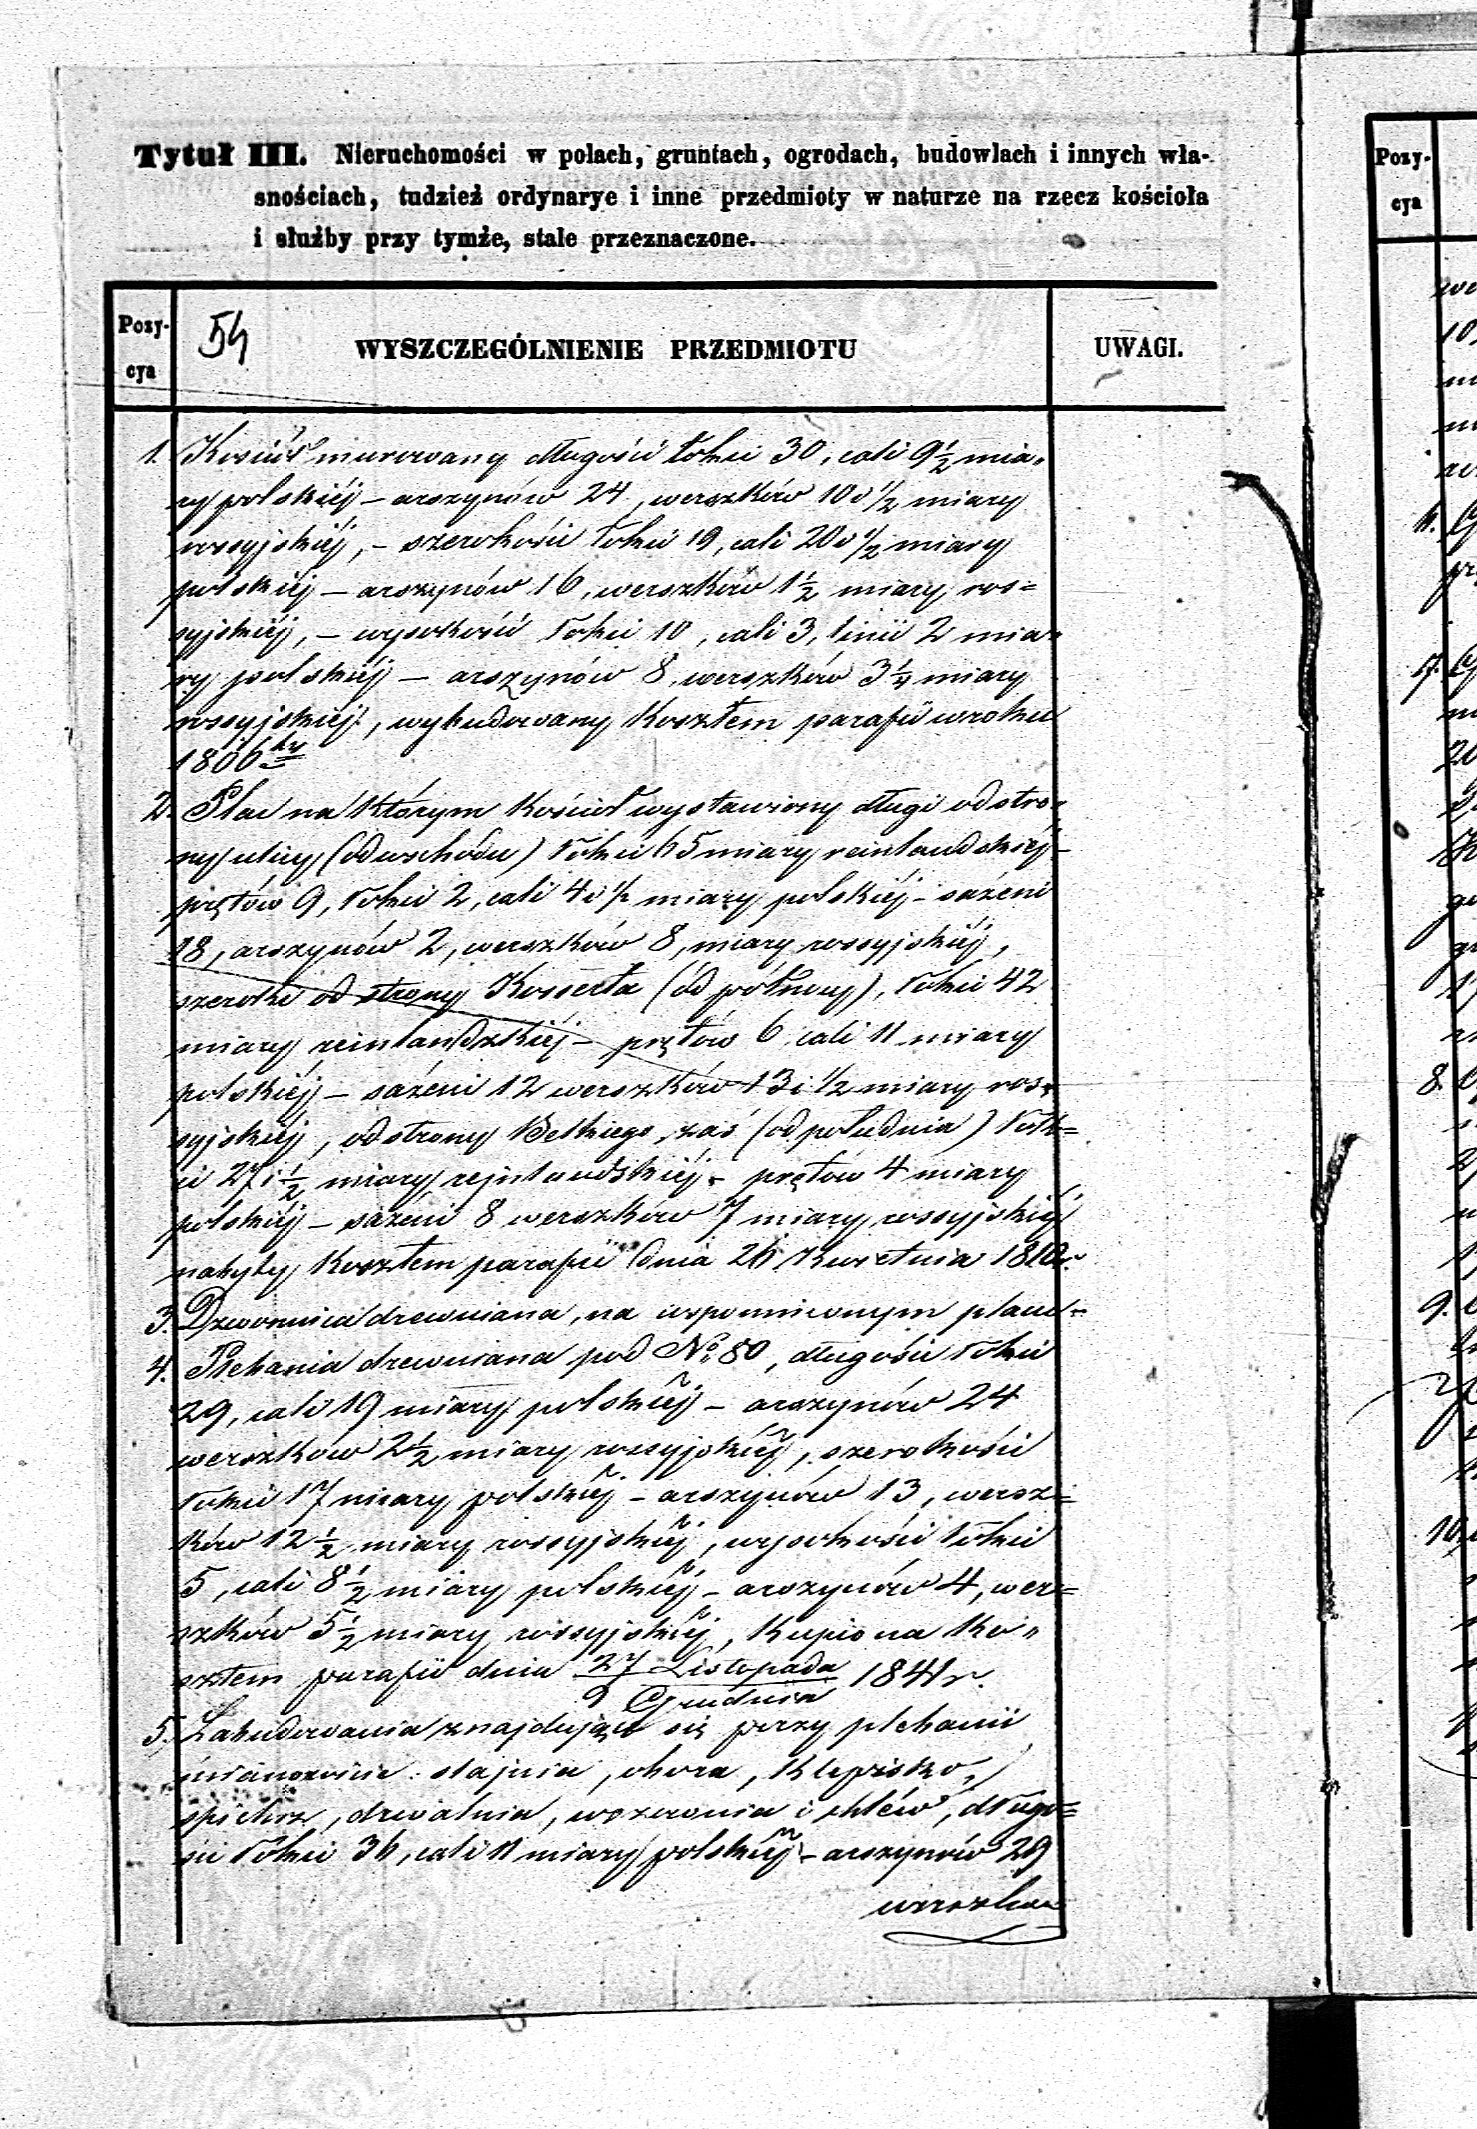 Tytuł III. Nieruchomości w polach, gruntach, ogrodach, budowlach i innych wła-
snościach, tudzież ordynarye i inne przedmioty w naturze na rzecz kościoła
i służby przy tymże, stale przeznaczone.
Pozy-
cya
54
WYSZCZEGÓLNIENIE PRZEDMIOTU
UWAGI.
1. Kościół murowany długości łokci 30, cali 9½ mia„
ry polskiéj – arszynów 24, werszków 10 i ½ miary
rossyjskiéj, – szerokości łokci 19, cali 20 i ½ miary
polskiéj – arszynów 16, werszków 1½ miary ros=
syjskiéj, – wysokość łokci 10, cali 3, linii 2 mia„
ry polskiéj – arszynów 8, werszków 3¼ miary
rossyjskiéj, wybudowany kosztem parafii w roku
1806
2. Plac na którym kościół wystawiony długi od stro„
ny ulicy (od wschodu) łokci 65 miary reinlandskiéj –
prętów 9, łokci 2, cali 4 i ½ miary polskiéj – sażeni
18, arszynów 2, werszków 8, miary rossyjskiéj,
szeroki od strony Kosserta (od północy), łokci 42
miary reinlandzkiéj – prętów 6 cali 11 miary
polskiéj – sażeni 12 werszków 13 i ½ miary ros„
syjskiéj, od strony Belkiego, zaś (od południa) łok=
ci 27 i ½ miary rejnlandskiéj – prętów 4 miary
polskiéj – sażeni 8 werszków 7 miary rossyjskiéj
nabyty kosztem parafii dnia 26 Kwietnia 1810 r.
3. Dzwonnica drewniana, na wspomnionym placu –
4. Plebania drewniana pod No 80, długości łokci
29, cali 19 miary polskiéj – arszynów 24
werszków 2½ miary rossyjskiéj, szerokości
łokci 17 miary polskiéj – arszynów 13, wersz=
ków 12½ miary rossyjskiéj, wysokości łokci
5, cali 8½ miary polskiéj – arszynów 4, wer=
szków 5½ miary rossyjskiéj, kupiona ko„
sztem parafii dnia 27 Listopada / 9 Grudnia 1841 r.
5. Zabudowania znajdujące się przy plebanii
mianowicie: stajnia, obora, klepisko,
spichrz, drwalnia, wozownia i chlew, długo=
ści łokci 36, cali 11 miary polskiéj – arszynów 29
werszków
Pozy-
cya
10.
8.
9.